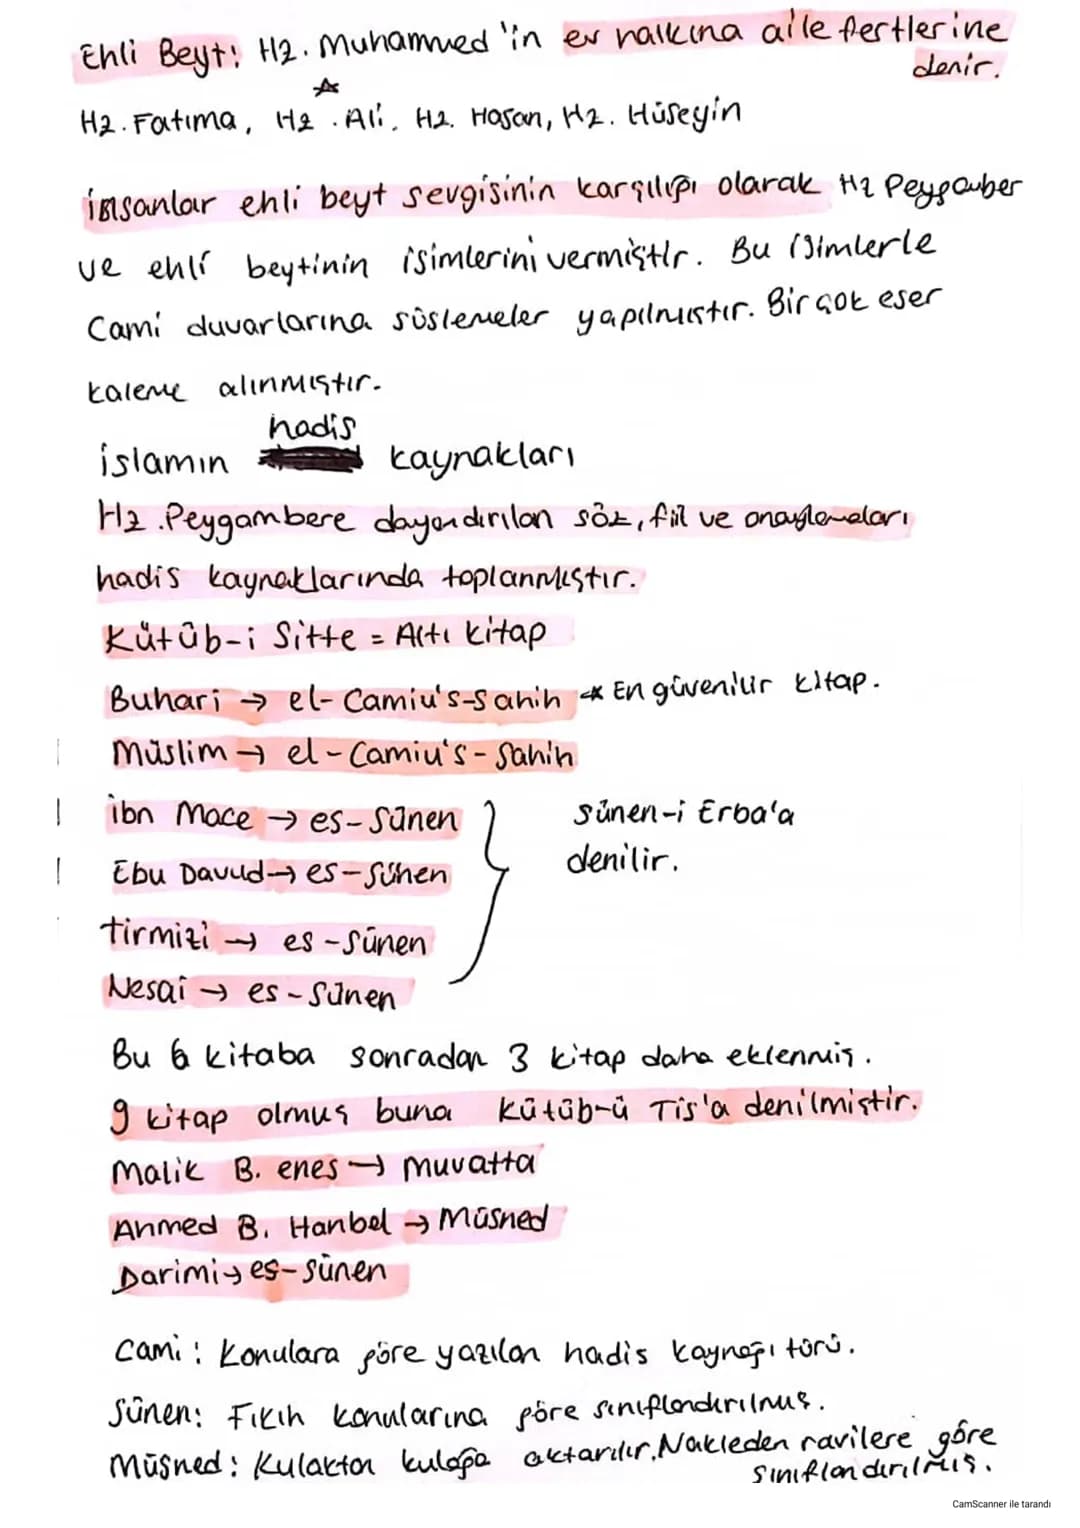 Ehli Beyt: Hz. Muhammed'in ev halkına aile fertlerine
denir.
Hz. Fatıma, Hz. Ali, Hz. Hasan, Hz. Hüseyin
insanlar ehli beyt sevgisinin karşılığı olarak Hz Peygamber
ve ehli beytinin isimlerini vermiştir. Bu isimlerle
Cami duvarlarına süslemeler yapılmıştır. Bir çok eser
kaleme alınmıştır.
hadis
islamın kaynakları
Hz. Peygambere dayandırılan söz, fiil ve onaylamaları
hadis kaynaklarında toplanmıştır.
Kütüb-i Sitte = Altı kitap
Buhari → el-Camiu's-Sahih * En güvenilir kitap.
Müslim → el-Camiu's-Sahih
ibn Mace → es-Sünen
Sünen-i Erba'a
Ebu Davud → es-Sünen
denilir.
tirmizi → es-Sünen
Nesaî → es-Sünen
Bu 6 kitaba sonradan 3 kitap daha eklenmiş.
9 kitap olmuş buna Kütüb-ü Tis'a denilmiştir.
Malik B. enes → muvatta
Ahmed B. Hanbel → Müsned
Darimi → es-sünen
Cami: Konulara göre yazılan hadis kaynağı türü.
Sünen: Fıkıh konularına göre sınıflandırılmış.
Müsned: Kulaktan kulağa aktarılır. Nakleden ravilere göre
sınıflandırılmış.
CamScanner ile tarandı